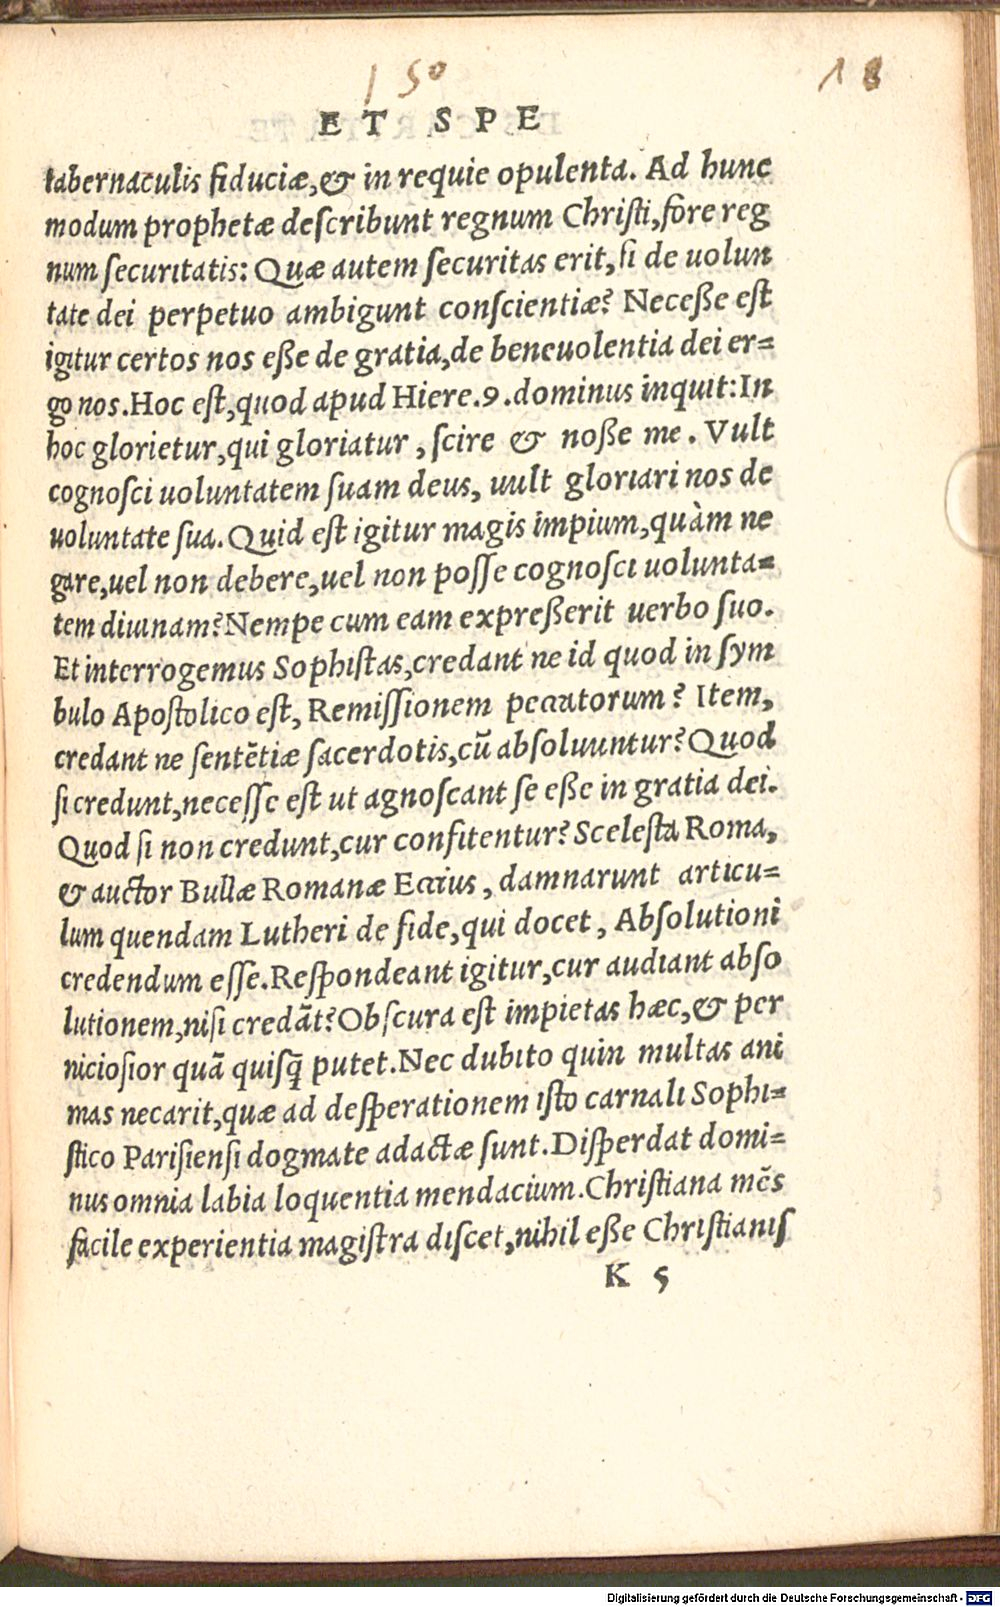 150
18
ET SPE
tabernaculis fiduciæ,& in requie opulenta. Ad hunc
modum prophetæ deſcribunt regnum Chriſti,fore reg
num ſecuritatis: Quæ autem ſecuritas erit,ſi de uolun
tate dei perpetuo ambigunt conſcientiæ? Neceße eſt
igitur certos nos eße de gratia,de beneuolentia dei er=
go nos.Hoc eſt,quod apud Hiere.9.dominus inquit:In
hoc glorietur,qui gloriatur, ſcire & noße me. Vult
cognoſci uoluntatem ſuam deus, uult gloriari nos de
uoluntate ſua.Quid eſt igitur magis impium,quàm ne
gare,uel non debere,uel non poſſe cognoſci uolunta=
tem diuinam?Nempe cum eam expreßerit uerbo ſuo.
Et interrogemus Sophiſtas,credant ne id quod in ſym
bulo Apoſtolico eſt, Remiſſionem peccatorum? Item,
credant ne ſentētiæ ſacerdotis,cū abſoluuntur?Quod
ſi credunt,neceſſe eſt ut agnoſcant ſe eße in gratia dei.
Quod ſi non credunt,cur confitentur?Sceleſta Roma,
& auctor Bullæ Romanæ Eccius, damnarunt articu=
lum quendam Lutheri de fide,qui docet, Abſolutioni
credendum eſſe.Reſpondeant igitur,cur audiant abſo
lutionem,niſi credāt?Obſcura eſt impietas hæc,& per
nicioſior quā quiſq̄ putet.Nec dubito quin multas ani
mas necarit,quæ ad deſperationem iſto carnali Sophi=
ſtico Pariſienſi dogmate adactæ ſunt.Diſperdat domi=
nus omnia labia loquentia mendacium.Chriſtiana mēs
facile experientia magiſtra diſcet,nihil eße Chriſtianiſ
K 5
Digitalisierung gefördert durch die Deutsche Forschungsgemeinschaft - DFG